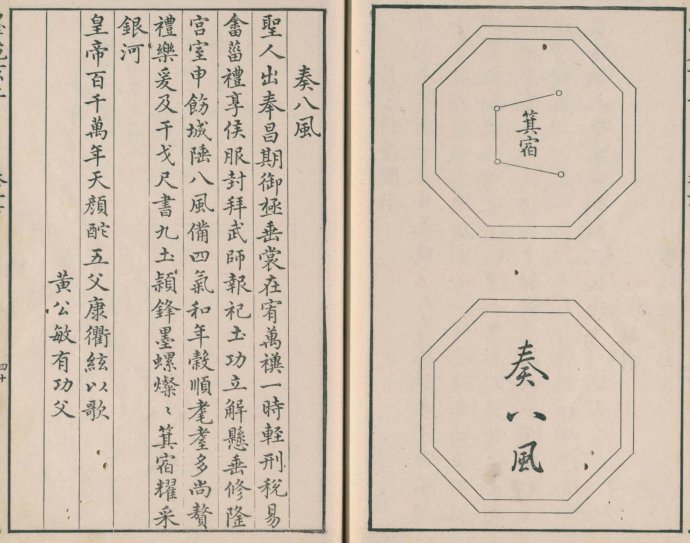 箕宿
奏八風
奏八風
聖人出奉昌期御極垂裳在宥萬禩一時輕刑稅易
畬菑禮享侯服封拜武師報祀土功立解懸垂修隆
宮室申飭城陲八風備四氣和年穀順耄耋多尚贅
禮樂爰及干戈尺書九土穎鋒墨螺燦〻箕宿耀采
銀河
皇帝百千萬年天顏酡五父康衢絃以歌
黃公敏有功父